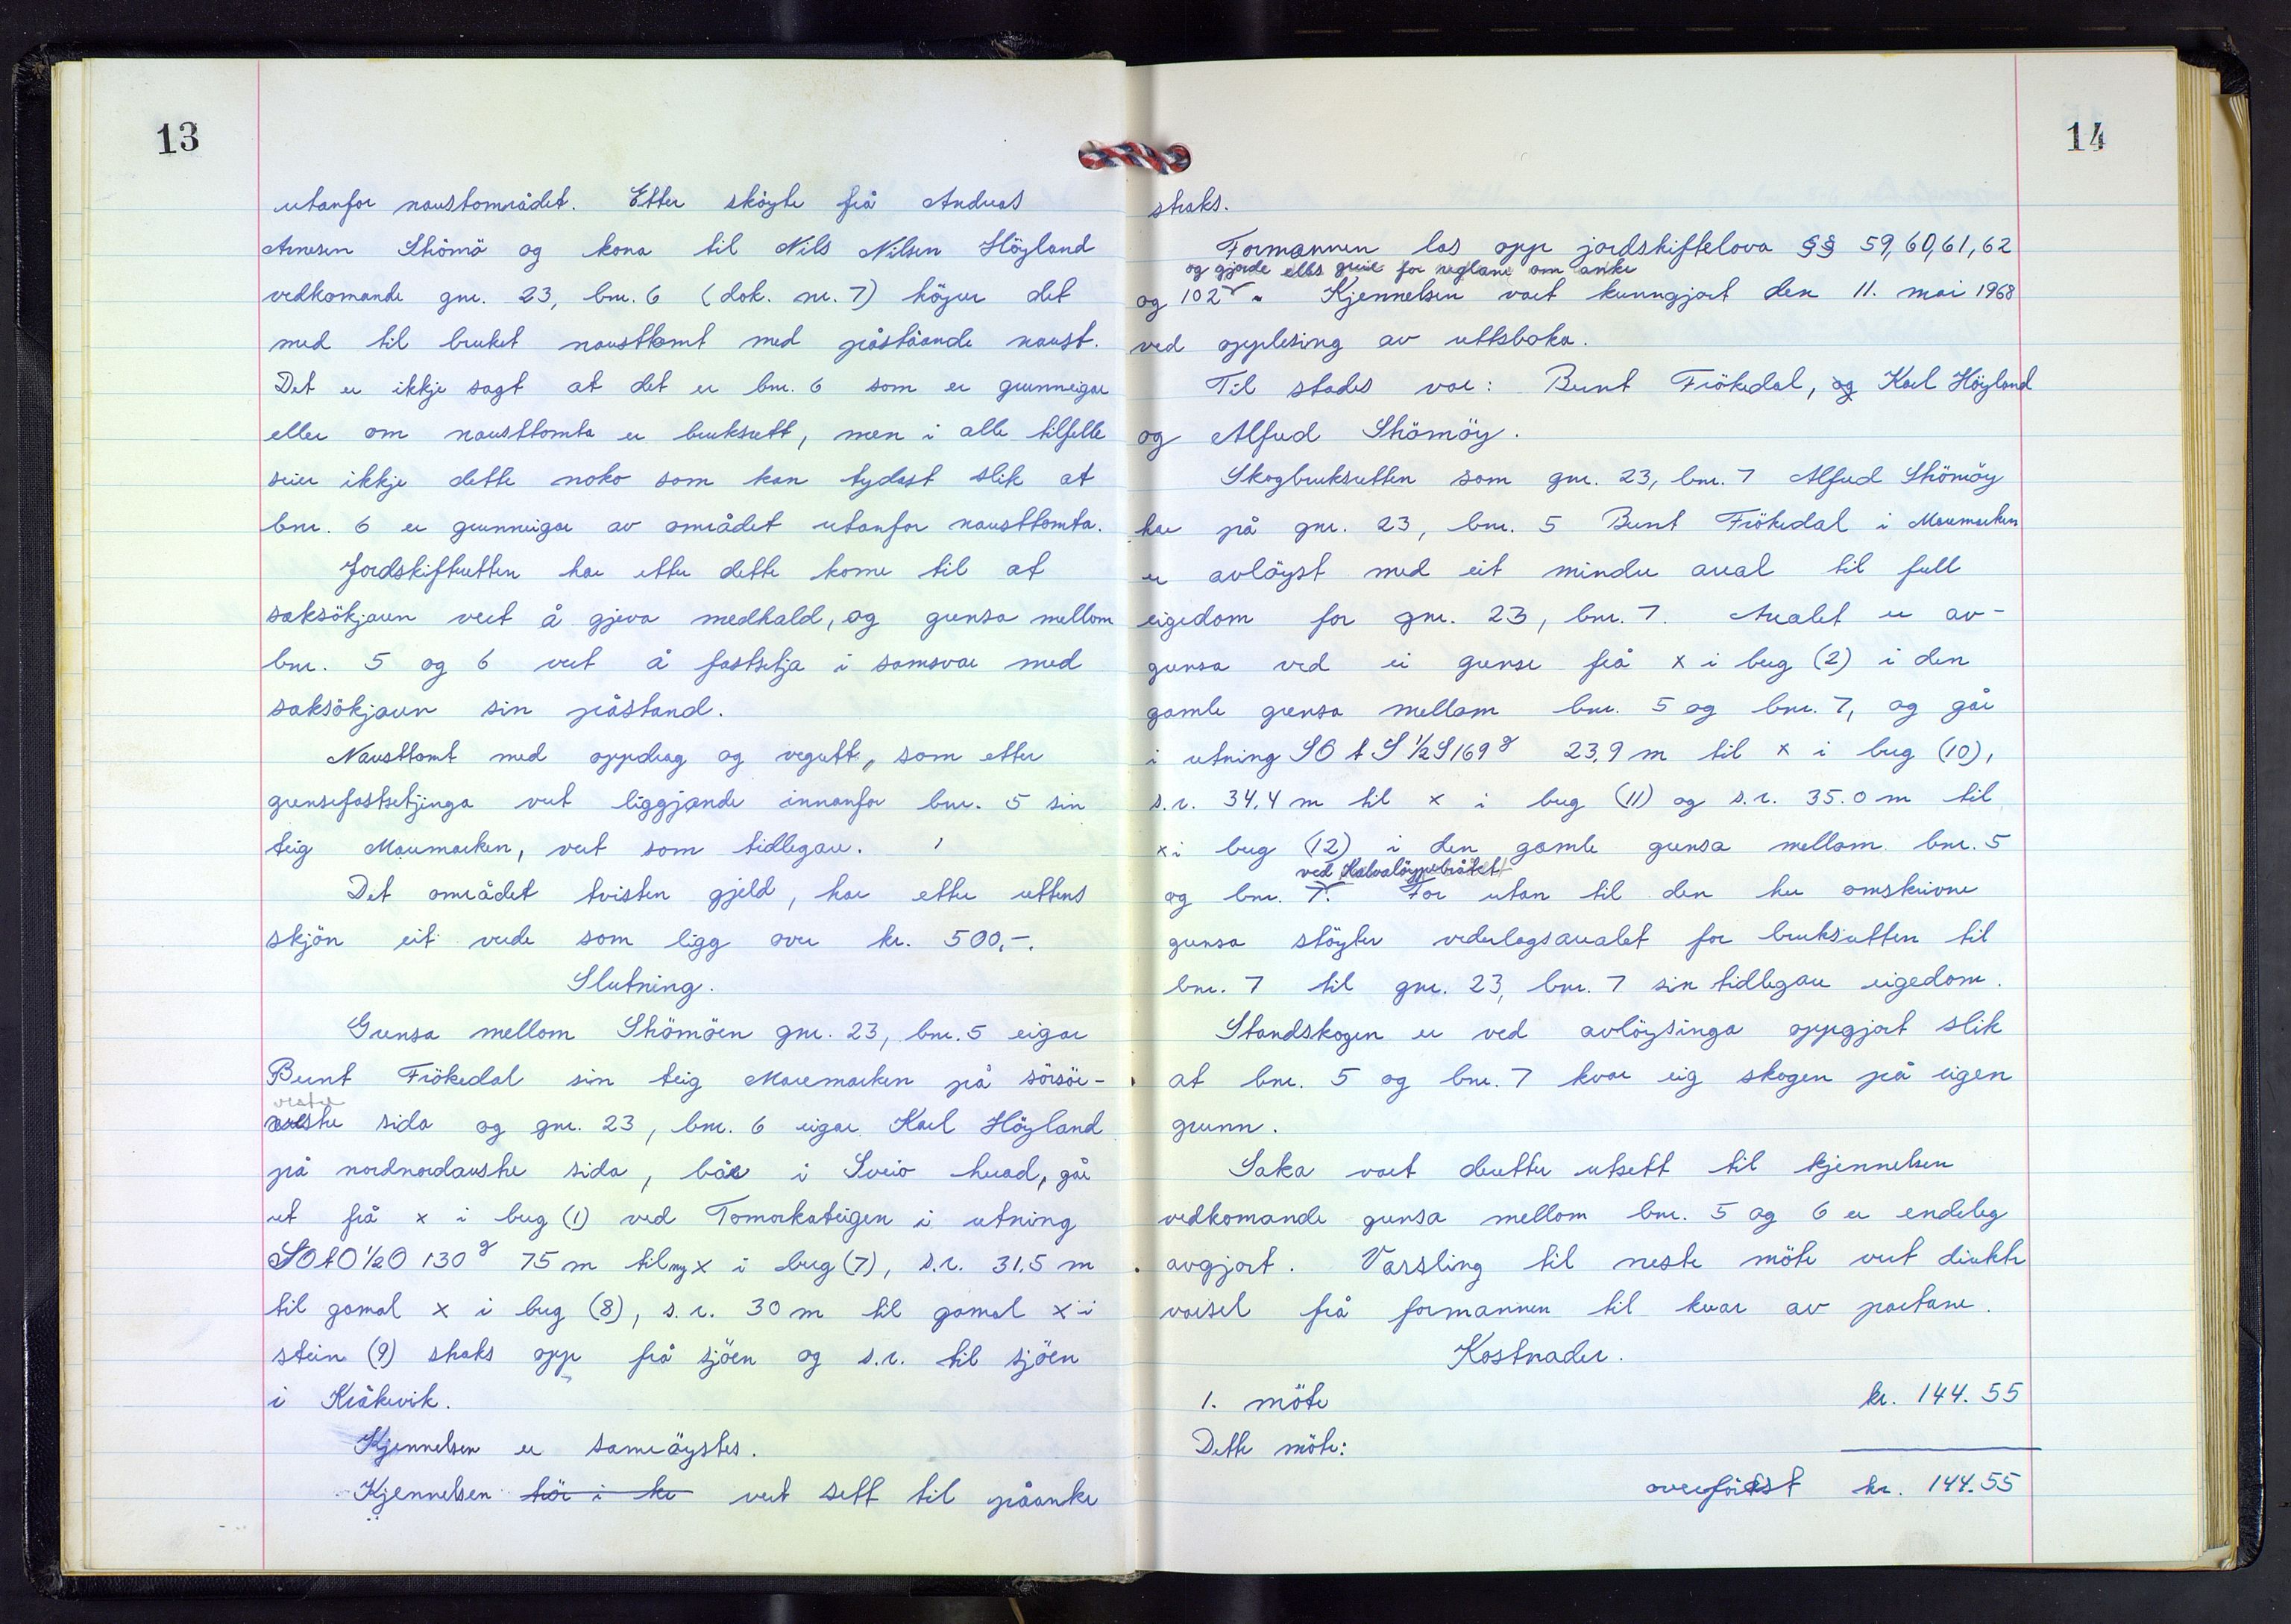 13
utanfor naustområdet. Etter skøyte frå Andreas
Arnesen Strömö og kona til Nils Nilsen Höyland
vedkomande gnr. 23, bnr. 6 (dok. nr. 7) höyrer det
med til bruket nausttomt med påståande naust.
Det er ikkje sagt at det er bnr. 6 som er grunneigar
eller om nausttomta er bruksrett, men i alle tilfelle
seier ikkje dette noko som kan tydast slik at
bnr. 6 er grunneigar av området utanfor nausttomta.
Jordskifteretten har etter dette kome til at
saksökjaren vert å gjeva medhald, og grensa mellom
bnr. 5 og 6 vert å fastsetja i samsvar med
saksökjaren sin påstand.
Nausttomt med oppdrag og vegrett, som etter
grensefastsetjinga vert liggjande innanfor bnr. 5 sin
teig Maremarken, vert som tidlegare.
Det området tvisten gjeld, har etter rettens
skjön eit verde som ligg over kr. 500,-.
Slutning.
Grensa mellom Strömöen gnr. 23, bnr. 5 eigar
Bernt Frökedal sin teig Maremarken på sörsör-
vestre
sida og gnr. 23, bnr. 6 eigar Karl Höyland
på nordnordaustre sida, båe i Sveio herad, går
ut frå x i berg (1) ved Tomarkateigen i retning
SOtO½O 130 g 75 m til ny x i berg (7), s.r. 31.5 m
til gamal x i berg (8), s.r. 30 m til gamal x i
stein (9) straks opp frå sjöen og s.r. til sjöen
i Kråkevik.
Kjennelsen er samröystes.
Kjennelsen bör i kr vert sett til påanke
14
straks.
Formannen las opp jordskiftelova §§ 59, 60, 61, 62
og gjorde elles greie for reglane om anke
og 102. Kjennelsen vart kunngjort den 11. mai 1968
ved opplesing av rettsboka.
Til stades var: Bernt Frökedal, og Karl Höyland
og Alfred Strömöy.
Skogbruksretten som gnr. 23, bnr. 7 Alfred Strömöy
har på gnr. 23, bnr. 5 Bernt Frökedal i Maremarken
er avlöyst med eit mindre areal til full
eigedom for gnr. 23, bnr. 7. Arealet er av-
grensa ved ei grense frå x i berg (2) i den
gamle grensa mellom bnr. 5 og bnr. 7, og går
i retning SO t S ½ S 169 g 23,9 m til x i berg (10),
s.r. 34,4 m til x i berg (11) og s.r. 35.0 m til
x i berg (12) i den gamle grensa mellom bnr. 5
ved Kalvalöypebråtet
og bnr. 7. For utan til den her omskrivne
grensa stöyter vederlagsarealet for bruksretten til
bnr. 7 til gnr. 23, bnr. 7 sin tidlegare eigedom.
Standskogen er ved avlöysinga oppgjort slik
at bnr. 5 og bnr. 7 kvar eig skogen på eigen
grunn.
Saka vart deretter utsett til kjennelsen
vedkomande grensa mellom bnr. 5 og 6 er endeleg
avgjort. Varsling til neste möte vert direkte
varsel frå formannen til kvar av partane.
Kostnader.
1. möte kr. 144.55
Dette möte:
overförest kr. 144.55